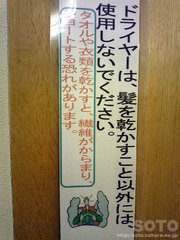 ドライヤーは、髪を乾かすこと以外には、
使用しないでください。
タオルや衣類を乾かすと、繊維がからまり、
ショートする恐れがあります。
SOTO
http://soto.sakura.ne.jp/